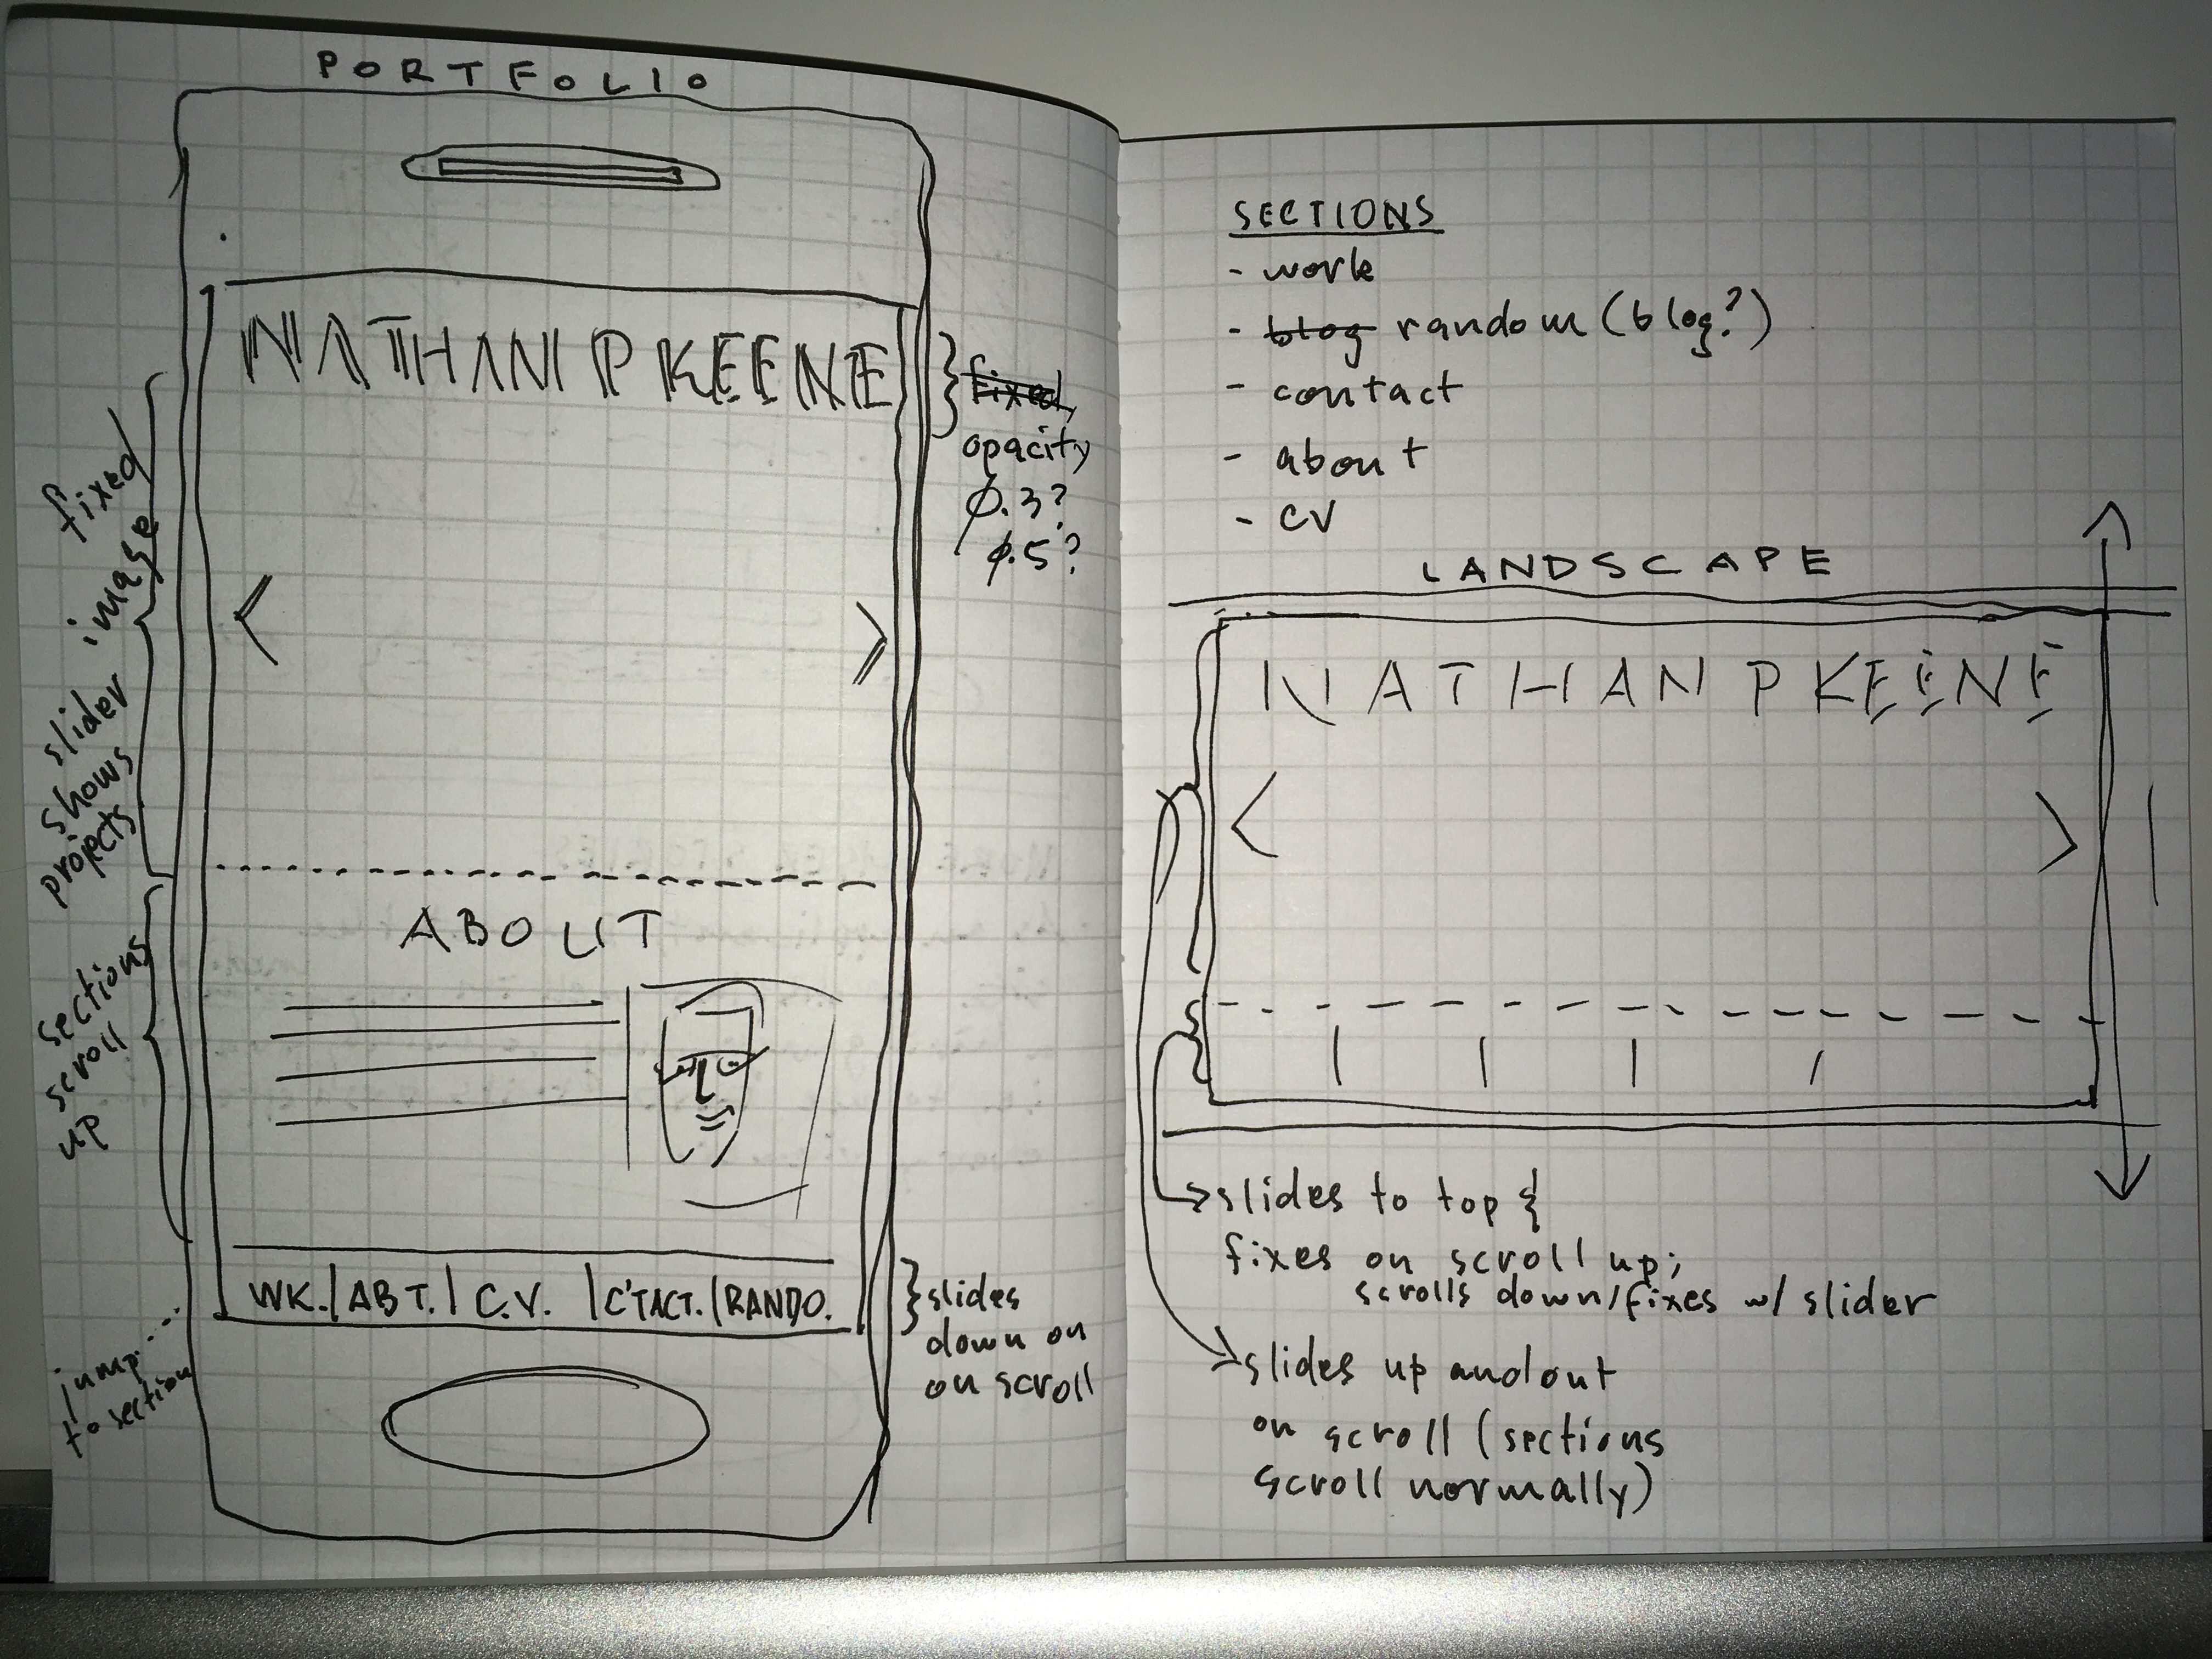 PORTFOLIO
fixed
image
slider
shows
projects
sections
scroll
up
jump
to section
NATHAN P KEENE
<
>
ABOUT
WK. | ABT. | C.V. | C'TACT. | RANDO.
fixed
opacity
0.3?
0.5?
slides
down on
on scroll
SECTIONS
- work
- blog random (blog?)
- contact
- about
- CV
LANDSCAPE
NATHAN P KEENE
<
>
slides to top &
fixes on scroll up;
scrolls down/fixes w/ slider
slides up and out
on scroll (sections
scroll normally)